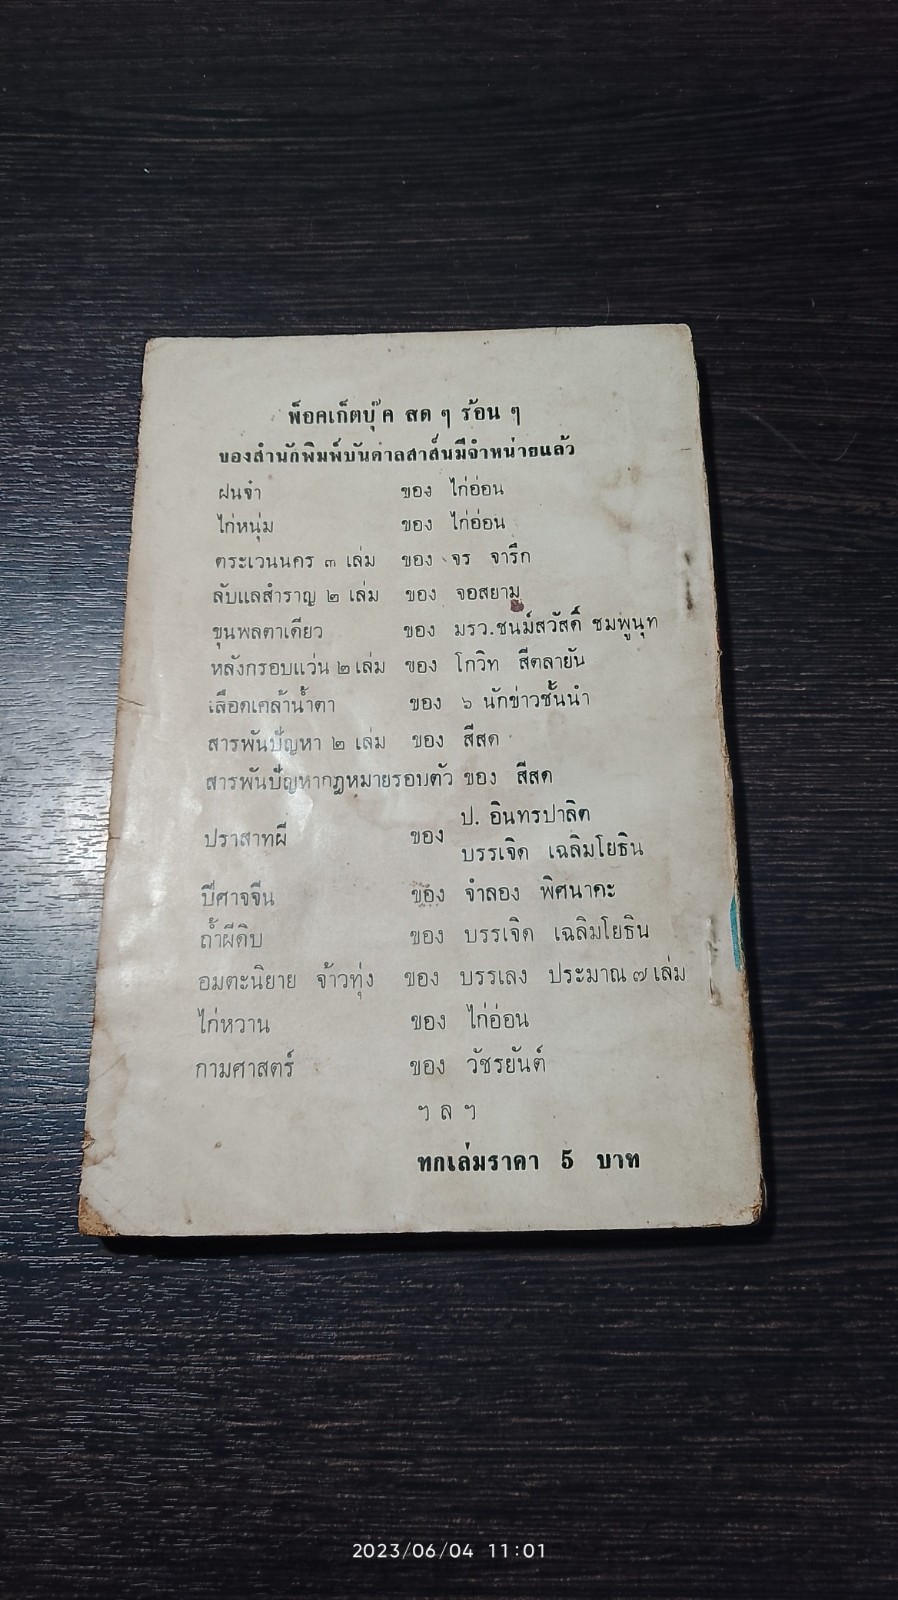 พ็อคเก็ตบุ๊ค สด ๆ ร้อน ๆ
ของสำนักพิมพ์บันดาลสาส์นมีจำหน่ายแล้ว
ฝนจ๋า ของ ไก่อ่อน
ไก่หนุ่ม ของ ไก่อ่อน
ตระเวนนคร ๓ เล่ม ของ จร จารึก
ลับแลสำราญ ๒ เล่ม ของ จอสยาม
ขุนพลตาเดียว ของ มรว.ชนม์สวัสดิ์ ชมพูนุท
หลังกรอบแว่น ๒ เล่ม ของ โกวิท สีตลายัน
เลือดเคล้าน้ำตา ของ ๖ นักข่าวชั้นนำ
สารพันปัญหา ๒ เล่ม ของ สีสด
สารพันปัญหากฎหมายรอบตัว ของ สีสด
ปราสาทผี ของ ป. อินทรปาลิต
บรรเจิด เฉลิมโยธิน
ปีศาจจีน ของ จำลอง พิศนาคะ
ถ้ำผีดิบ ของ บรรเจิด เฉลิมโยธิน
อมตะนิยาย จ้าวทุ่ง ของ บรรเลง ประมาณ ๗ เล่ม
ไก่หวาน ของ ไก่อ่อน
กามศาสตร์ ของ วัชรยันต์
ฯ ล ฯ
ทุกเล่มราคา 5 บาท
2023/06/04 11:01